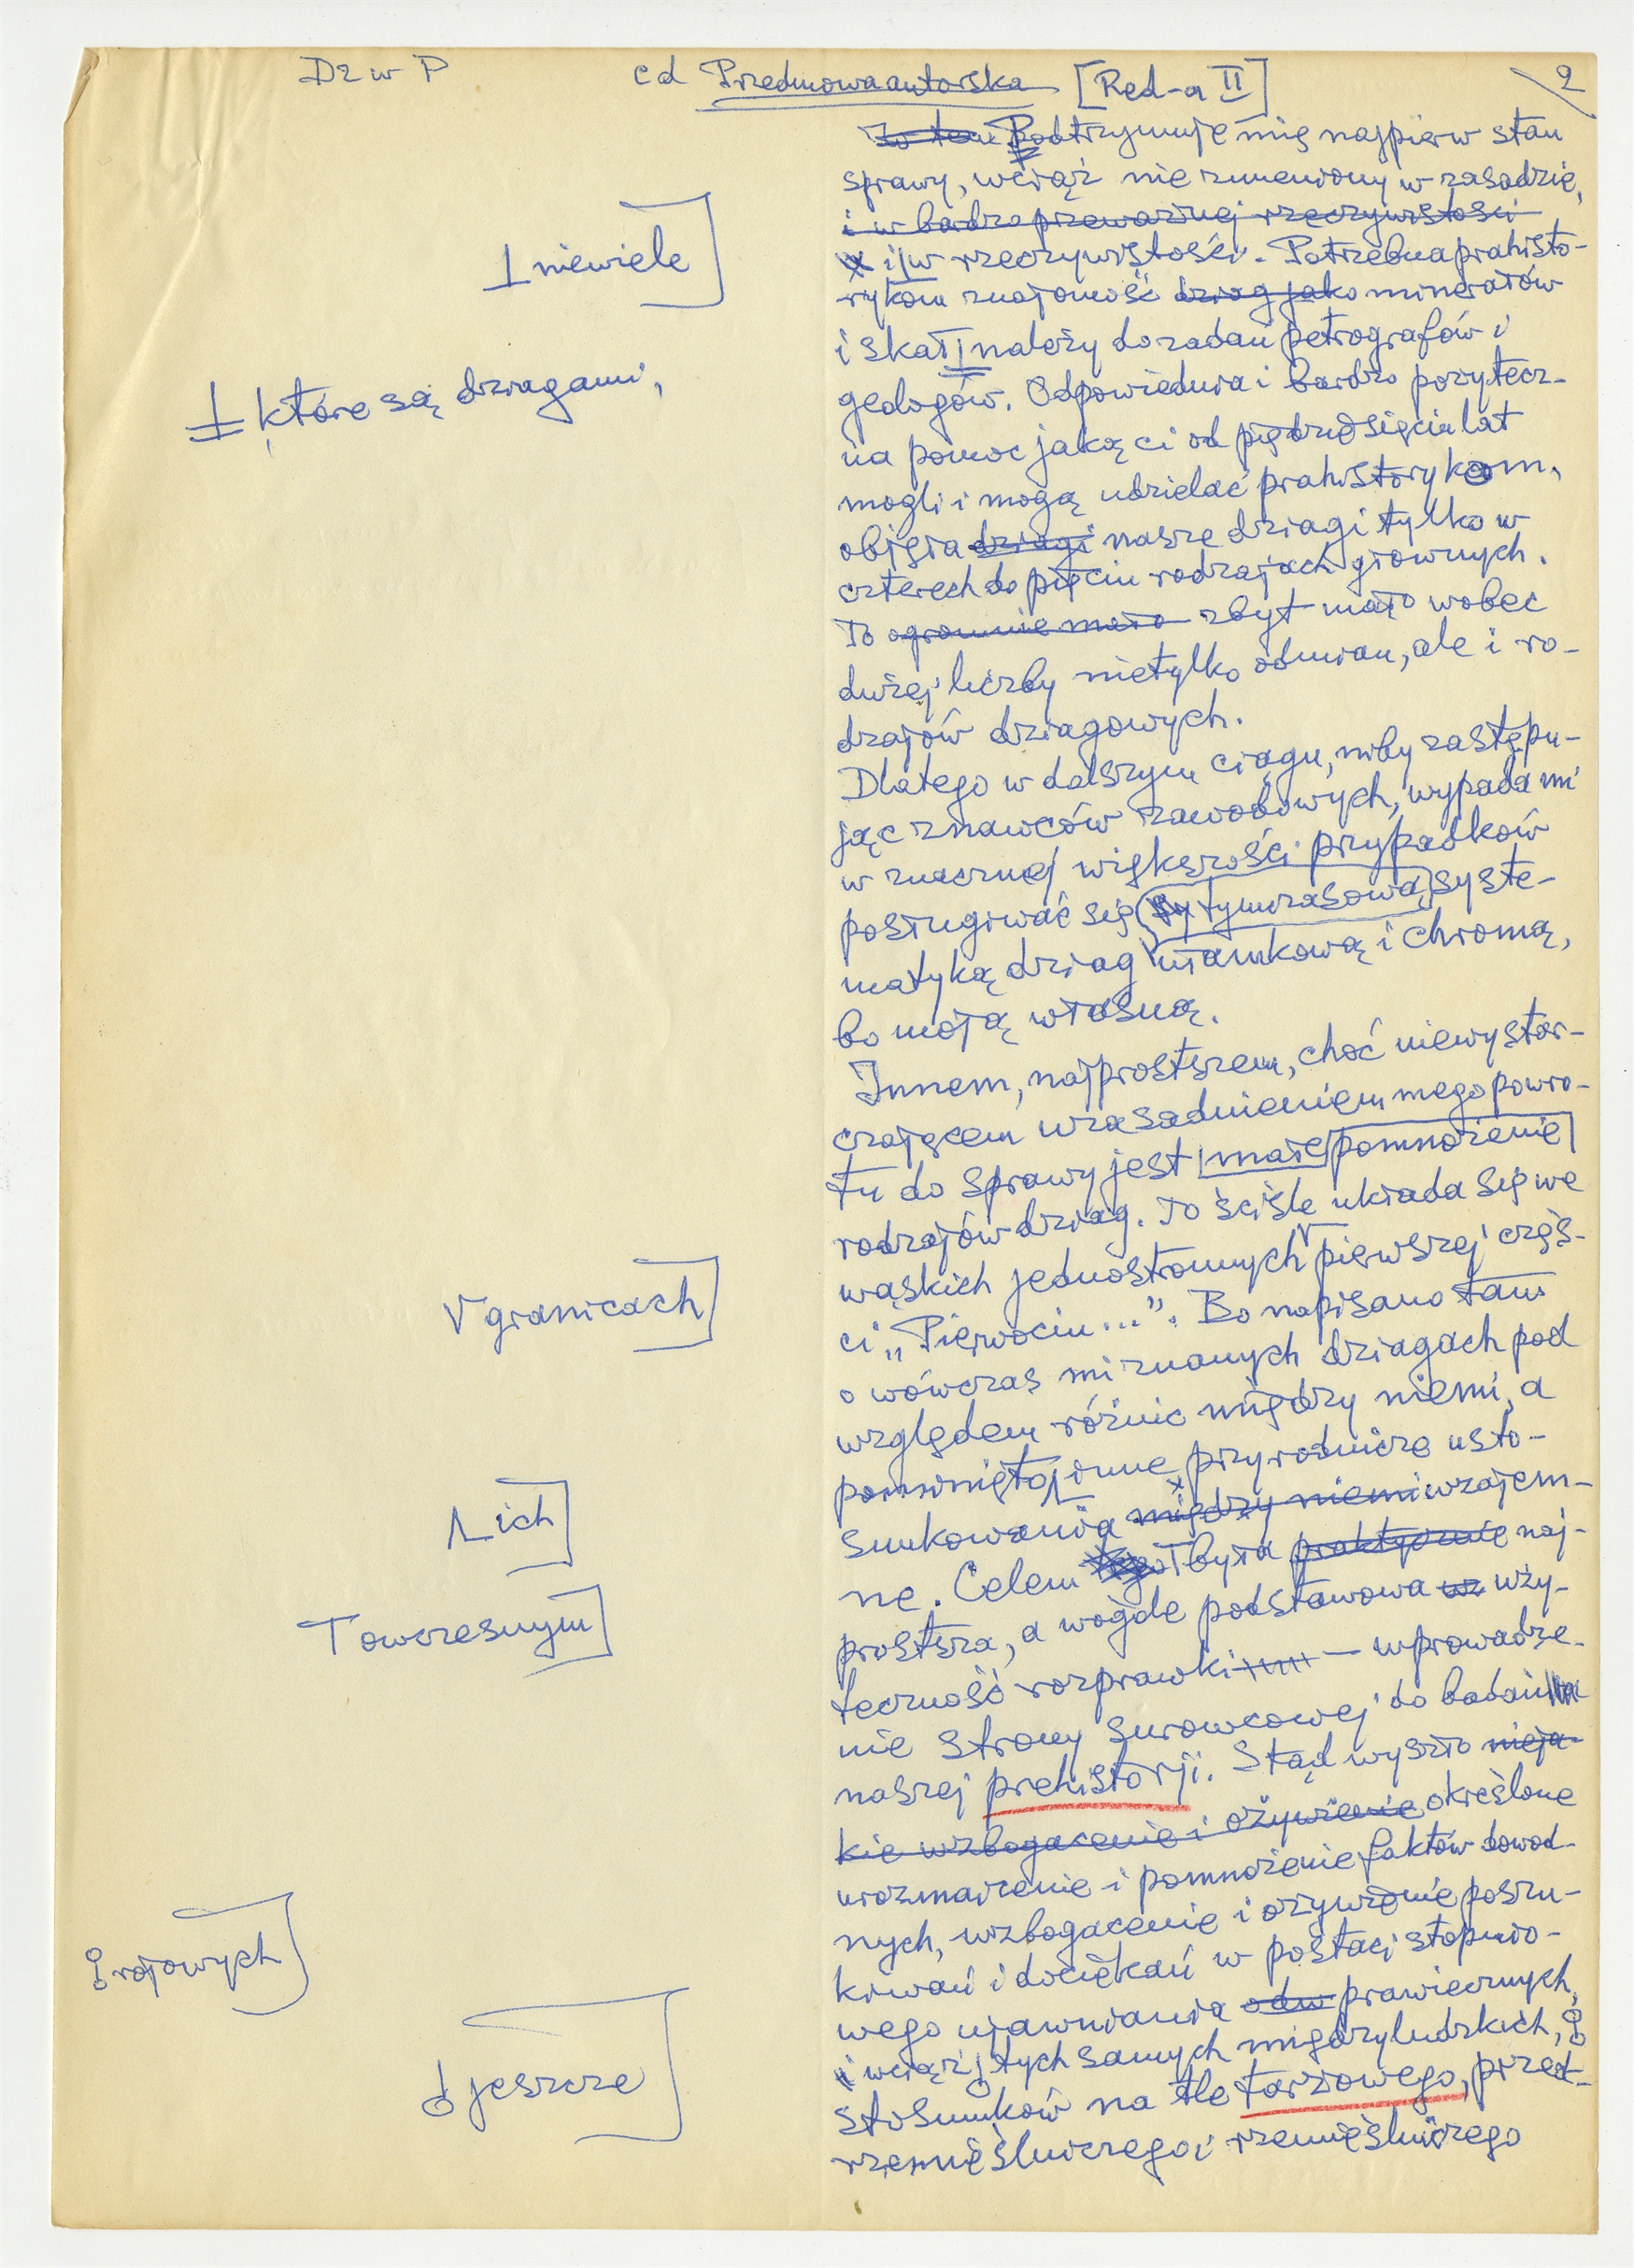 Dz w P cd Przedmowa autorska [Red-a II] 2
To tem Podtrzymuje mię najpierw stan
sprawy, wciąż nie zmieniony w zasadzie,
i w bardzo przeważnej rzeczywistości
⊥ niewiele
i w rzeczywistości. Potrzebna prahisto-
rykom znajomość dziag jako minerałów
i skał należy do zadań petrografów i
± które są dziagami,
geologów. Odpowiednia i bardzo pożytecz-
na pomoc jaką ci od pięćdziesięciu lat
mogli i mogą udzielać prahistorykom,
objęła dziagi nasze dziagi tylko w
czterech do pięciu rodzajach głównych.
To ogromnie mało zbyt mało wobec
dużej liczby nietylko odmian, ale i ro-
dzajów dziagowych.
Dlatego w dalszym ciągu, niby zastępu-
jąc znawców zawodowych, wypada mi
w znacznej większości przypadków
posługiwać się tymczasową syste-
matyką dziag ułamkową i chromą,
bo moją własną.
Innem, najprostszem, choć niewystar-
czającem uzasadnieniem mego powro-
tu do sprawy jest małe pomnożenie
rodzajów dziag. To ściśle układa się we
wąskich jednostronnych pierwszej częś-
V granicach
ci „Pierwocin...”. Bo napisano tam
o wówczas mi znanych dziagach pod
względem różnic między niemi, a
pominięto inne przyrodnicze usto-
Λ ich
sunkowania między niemi wzajem-
ne. Celem była praktycznie naj-
T owczesnym
prostsza, a wogóle podstawowa uż uży-
teczność rozprawki — wprowadze-
nie strony surowcowej do badań
naszej prehistorji. Stąd wyszło nieja-
kie wzbogacenie i ożywienie określone
urozmaicenie i pomnożenie faktów dowod-
nych, wzbogacenie i ożywienie poszu-
kiwań i dociekań w postaci stopnio-
rojowych
wego ujawniania odw prawiecznych,
i wciąż tych samych międzyludzkich,
jeszcze
stosunków na tle tarzowego, przed-
rzemieślniczego i rzemieślniczego